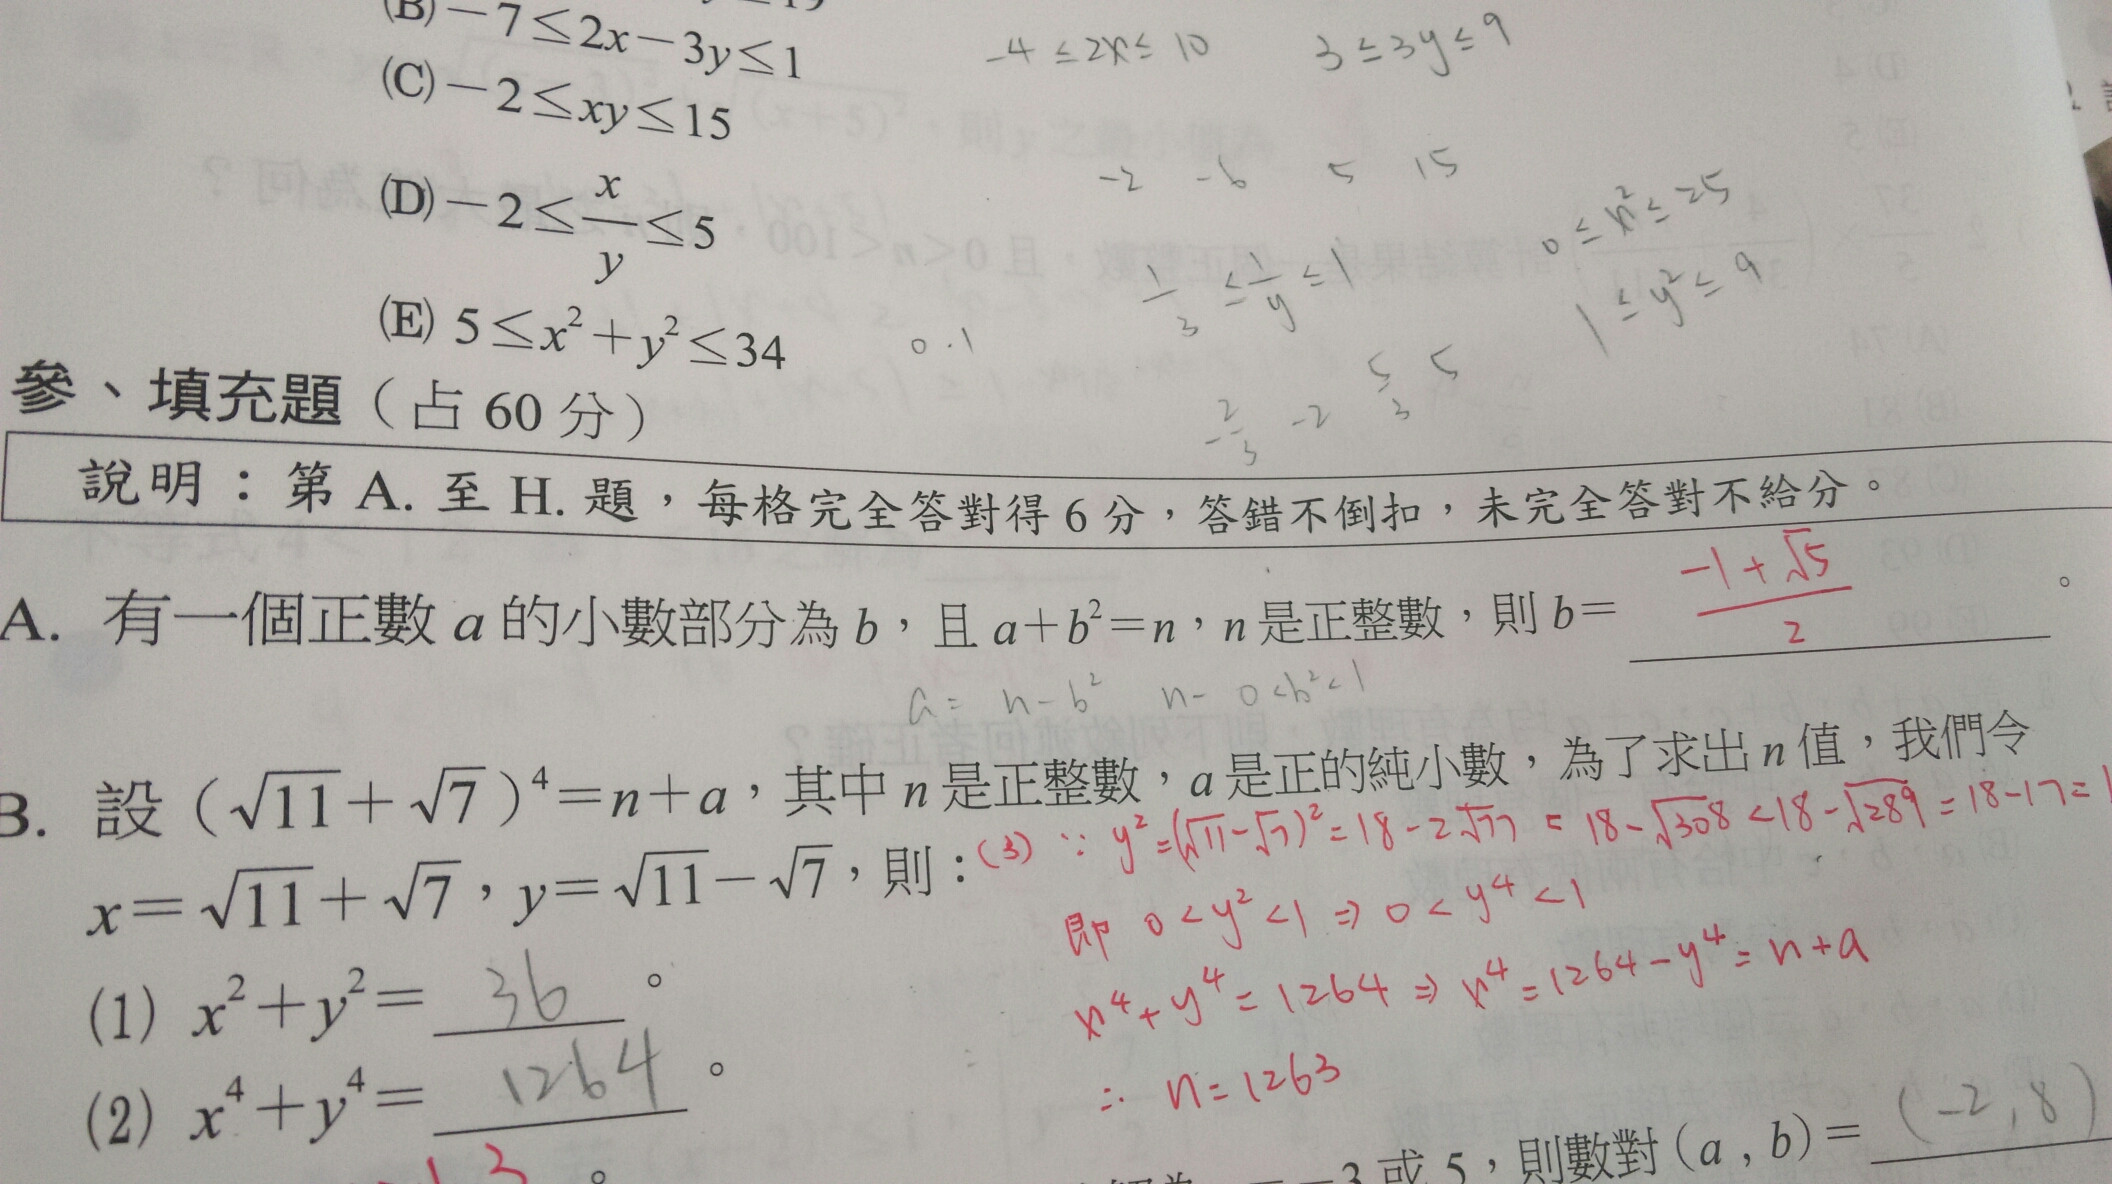 (B) −7≤2x−3y≤1
−4≤2x≤10 3≤3y≤9
(C) −2≤xy≤15
−2 −6 5 15
(D) −2≤x/y≤5
1/3≤1/y≤1
0≤x²≤25
1≤y²≤9
(E) 5≤x²+y²≤34
0.1
−2/3 −2 5/3 5
參、填充題（占 60 分）
說明：第 A. 至 H. 題，每格完全答對得 6 分，答錯不倒扣，未完全答對不給分。
A. 有一個正數 a 的小數部分為 b，且 a＋b²＝n，n 是正整數，則 b＝ (−1+√5)/2 。
a = n−b² n− 0<b²<1
B. 設（√11＋√7）⁴＝n＋a，其中 n 是正整數，a 是正的純小數，為了求出 n 值，我們令
x＝√11＋√7，y＝√11－√7，則：
(3) ∵ y²=(√11−√7)²=18−2√77 = 18−√308<18−√289=18−17=1
即 0<y²<1 ⇒ 0<y⁴<1
x⁴+y⁴=1264 ⇒ x⁴=1264−y⁴=n+a
∴ n=1263
(1) x²＋y²＝ 36 。
(2) x⁴＋y⁴＝ 1264 。
3 或 5，則數對 (a , b)＝ (−2, 8)